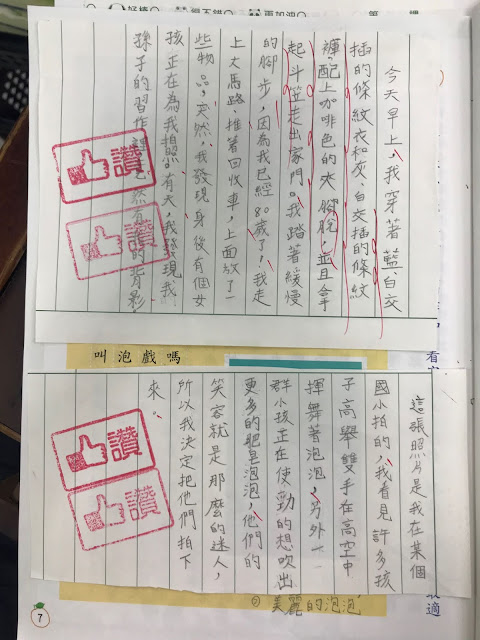 今天早上,我穿著藍、白交
插的條紋衣和灰、白交插的條紋
褲,配上咖啡色的夾腳脫,並且拿
起斗笠走出家門。我踏著緩慢
的腳步,因為我已經80歲了,我走
上大馬路,推著回收車,上面放了一
些物品,突然,我發現身後有個女
孩正在為我拍照。有天,我發現我
孫子的習作 然有 的背影
讚
讚
叫泡戲嗎
這張照片是我在某個
國小拍的,我看見許多孩
子高舉雙手在高空中
揮舞著泡泡,另外一
群小孩正在使勁的想吹出
更多的肥皂泡泡,他們的
笑容就是那麼的迷人,
所以我決定把他們拍下
來。
讚
讚
美麗的泡泡
7